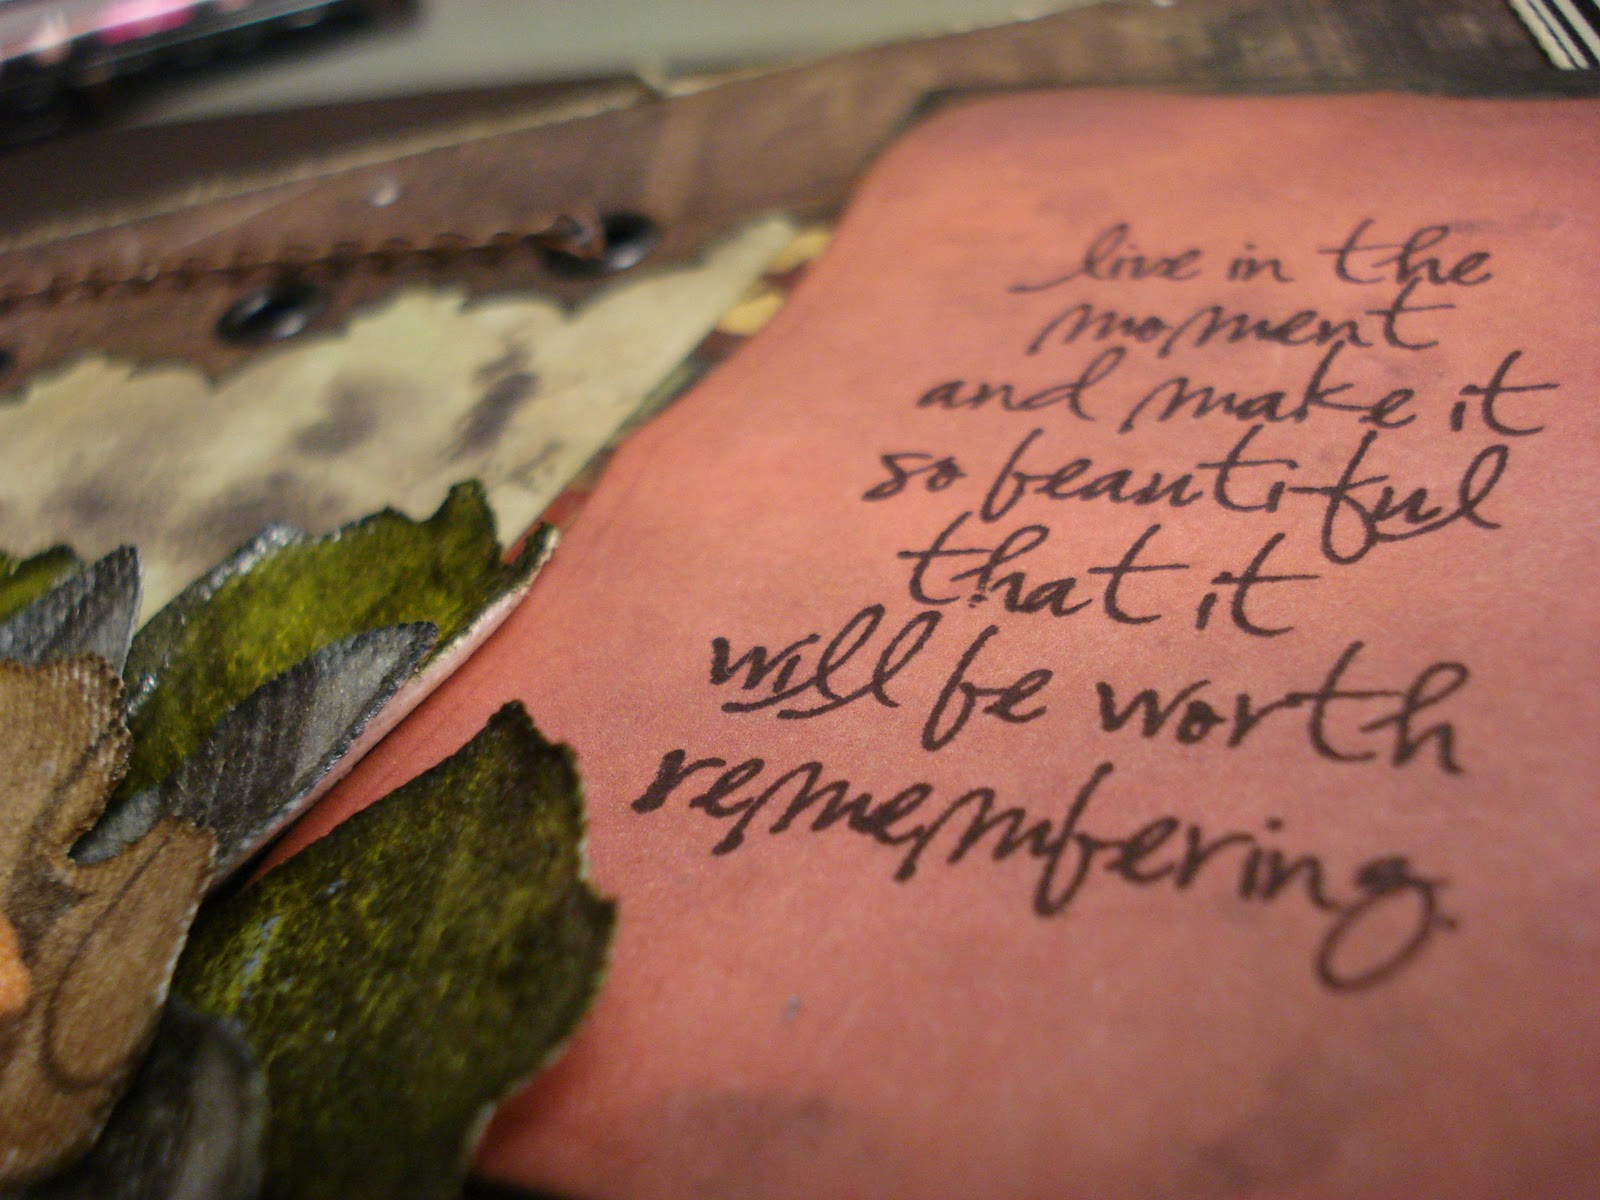 live in the
moment
and make it
so beautiful
that it
will be worth
remembering